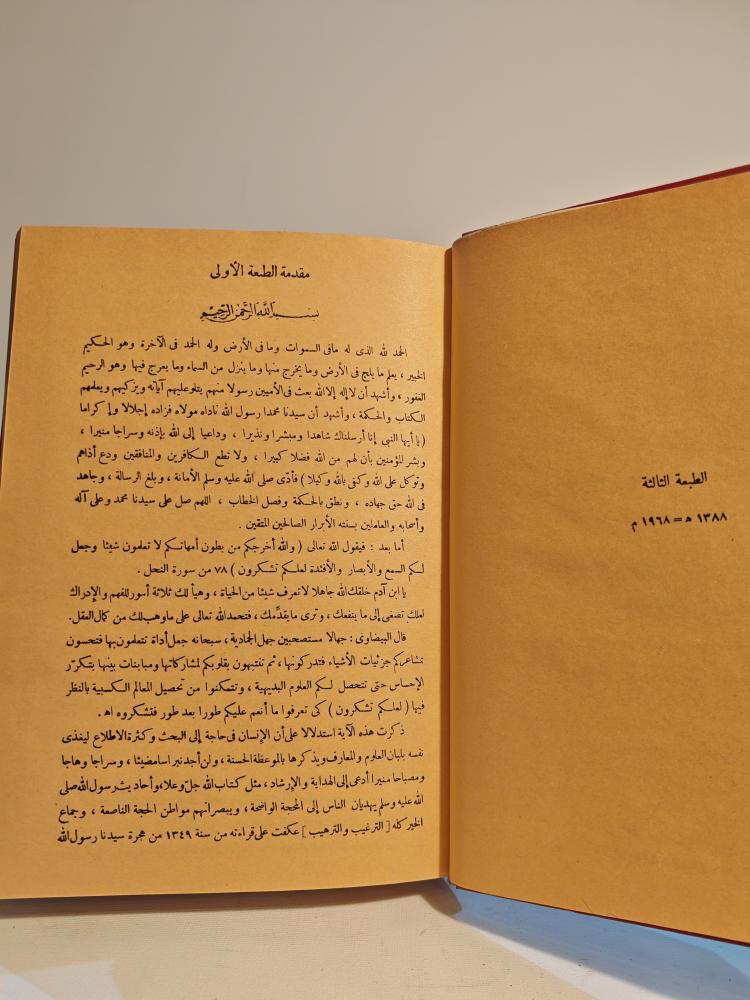 الطبعة الثالثة
١٣٨٨ ه = ١٩٦٨ م
مقدمة الطبعة الأولى
بسم الله الرحمن الرحيم
الحمد لله الذى له مافى السموات وما فى الأرض وله الحمد فى الآخرة وهو الحكيم
الخبير ، يعلم ما يلج فى الأرض وما يخرج منها وما ينزل من السماء وما يعرج فيها وهو الرحيم
الغفور ، وأشهد أن لا إله إلا الله بعث فى الأميين رسولا منهم يتلو عليهم آياته ويزكيهم ويعلمهم
الكتاب والحكمة ، وأشهد أن سيدنا محمدا رسول الله ناداه مولاه فزاده إجلالا وإكراما
( يا أيها النبى إنا أرسلناك شاهدا ومبشرا ونذيرا ، وداعيا إلى الله بإذنه وسراجا منيرا ،
وبشر المؤمنين بأن لهم من الله فضلا كبيرا ، ولا تطع الكافرين والمنافقين ودع أذاهم
وتوكل على الله وكفى بالله وكيلا ) فأدّى صلى الله عليه وسلم الأمانة ، وبلغ الرسالة ، وجاهد
فى الله حق جهاده ، ونطق بالحكمة وفصل الخطاب ، اللهم صل على سيدنا محمد وعلى آله
وأصحابه والعاملين بسنته الأبرار الصالحين المتقين .
أما بعد : فيقول الله تعالى ( والله أخرجكم من بطون أمهاتكم لا تعلمون شيئا وجعل
لكم السمع والأبصار والأفئدة لعلكم تشكرون ) ٧٨ من سورة النحل .
يا ابن آدم خلقك الله جاهلا لا تعرف شيئا من الحياة ، وهيأ لك ثلاثة أسور للفهم والإدراك
لعلك تصغى إلى ما ينفعك ، وترى ما يقدّمك ، فتحمد الله تعالى على ما وهب لك من كمال العقل.
قال البيضاوى : جهالا مستصحبين جهل الجمادية ، سبحانه جعل أداة تتعلمون بها فتحسون
بمشاعركم جزئيات الأشياء فتدركونها ، ثم تنتبهون بقلوبكم لمشاركاتها ومباينات بينها بتكرّر
الإحساس حتى تتحصل لكم العلوم البديهية ، وتتمكنوا من تحصيل المعالم الكسبية بالنظر
فيها ( لعلكم تشكرون ) كى تعرفوا ما أنعم عليكم طورا بعد طور فتشكروه اه .
ذكرت هذه الآية استدلالا على أن الإنسان فى حاجة إلى البحث وكثرة الاطلاع ليغذى
نفسه بلبان العلوم والمعارف ويذكرها بالموعظة الحسنة ، ولن أجد نبراسا مضيئا ، وسراجا وهاجا
ومصباحا منيرا أدعى إلى الهداية والإرشاد ، مثل كتاب الله جلّ وعلا ، وأحاديث رسول الله صلى
الله عليه وسلم يهديان الناس إلى المحجة الواضحة ، ويبصرانهم مواطن الحجة الناصعة ، وجماع
الخير كله [ الترغيب والترهيب ] عكفت على قراءته من سنة ١٣٤٩ من هجرة سيدنا رسول الله